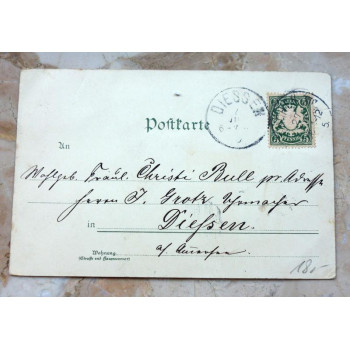 DIESSEN
Postkarte
An
Wohlgeb. Fräul. Christi Bull pr. Adresse
Herrn J. Grotz
in Diessen.
a/ Ammersee
Wohnung
(Straße und Hausnummer)
18.-